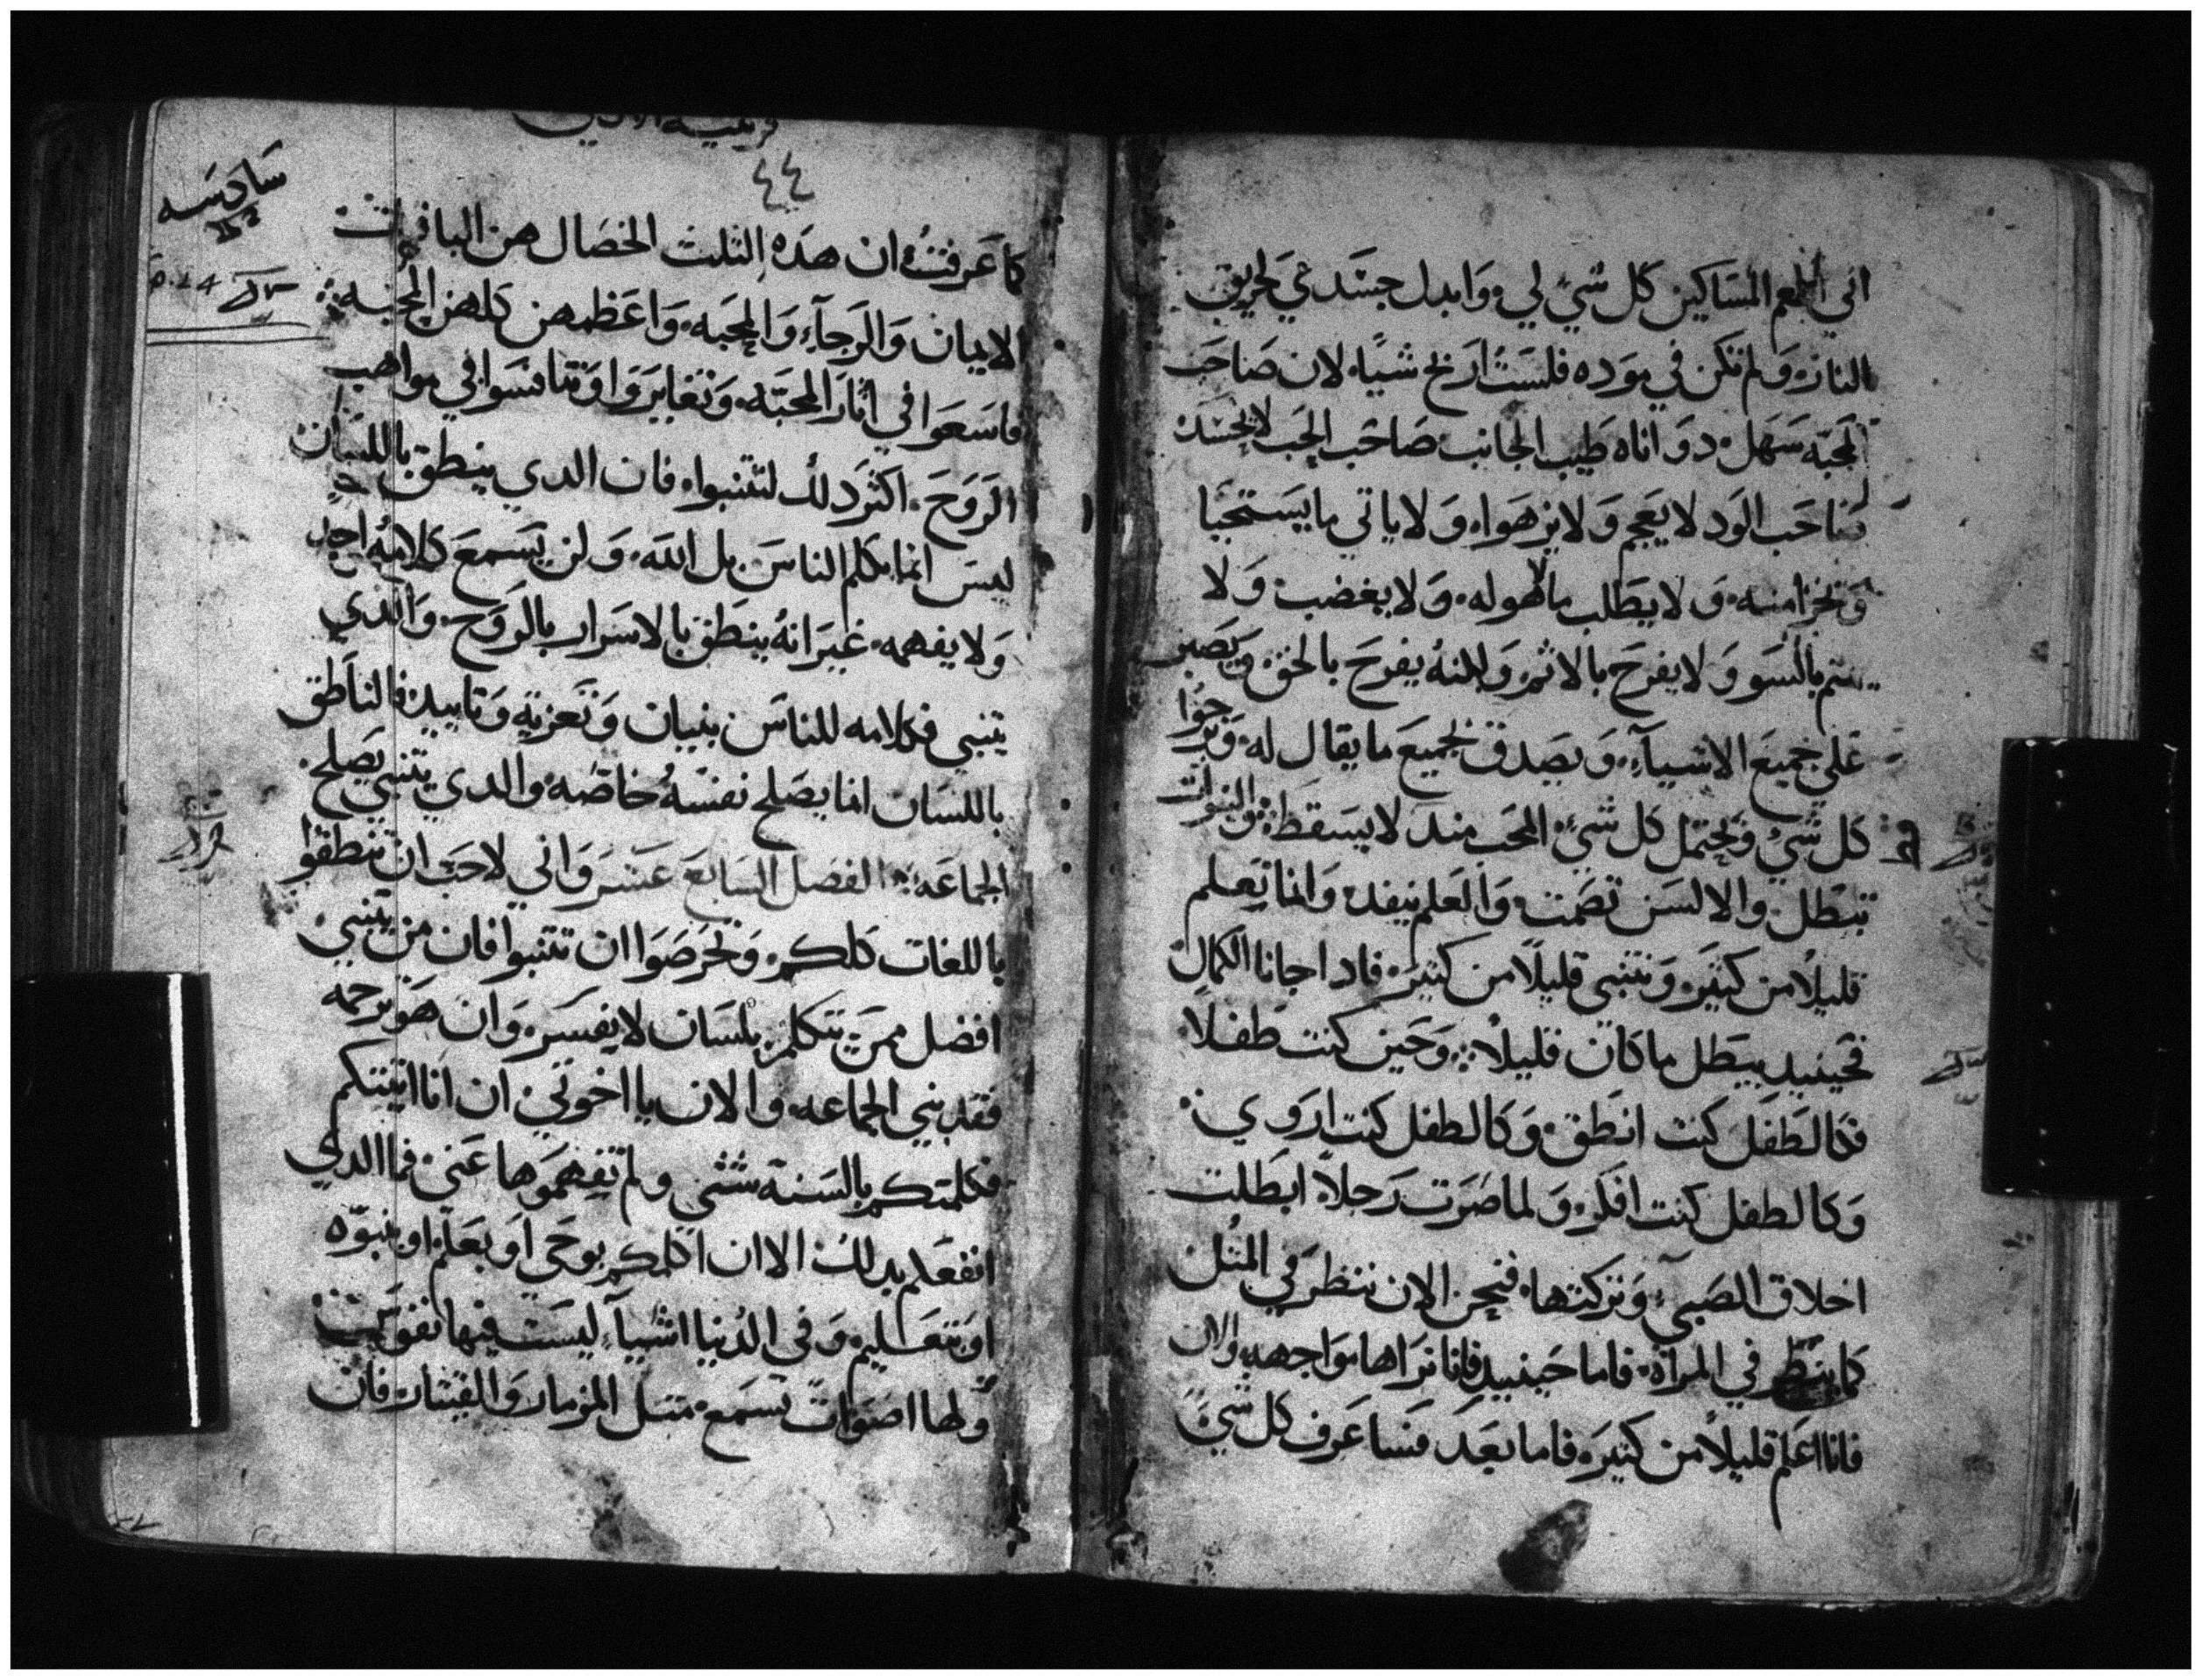 اني اطعم المساكين كل شي لي وابدل جسدي لحريق
النار ولم تكن في موده فلست اربح شيا لان صاحب
المحبه سهل دو اناه طيب الجانب صاحب الحب لا يحسد
صاحب الود لا يعجم ولا يزهوا ولا ياتي ما يستحيا
وتخزا منه ولا يطلب ما هو له ولا يغضب ولا
يهتم بالسو ولا يفرح بالاثم ولكنه يفرح بالحق ويصبر
على جميع الاشيآء ويصدق بجميع ما يقال له ويرجوا
كل شي ويحتمل كل شي المحب مند لا يسقط والنبوات
تبطل والالسن تصمت والعلم ينفد وانما نعلم
قليلاً من كثير ونتنبى قليلاً من كثير فادا جانا الكمال
فحينيد يبطل ما كان قليلاً وحين كنت طفلاً
فكالطفل كنت انطق وكالطفل كنت اروي
وكالطفل كنت افكر ولما صرت رجلاً ابطلت
اخلاق الصبي وتركتها فنحن الان ننظر في المثل
كما ينظر في المراة فاما حينيد فانا نراها مواجهه والان
فانا اعلم قليلاً من كثير فاما بعد فساعرف كل شي
٤٤
كما عرفت ان هده الثلث الخصال هن الباقيات
الايمان والرجآء والمحبه واعظمهن كلهن المحبه
فاسعوا في اثار المحبه وتغايروا وتنافسوا في مواهب
الروح اكثر دلك لتتنبوا فان الدي ينطق باللسان
ليس انما يكلم الناس بل الله ولن يسمع كلامه احد
ولا يفهمه غير انه ينطق بالاسرار بالروح والدي
يتنبي فكلامه للناس بنيان وتعزية وتاييد فالناطق
باللسان انما يصلح نفسه خاصه والدي يتنبي يصلح
الجماعه الفصل السابع عشر واني لاحب ان تنطقوا
باللغات كلكم وتحرصوا ان تتنبوا فان من يتنبي
افضل ممن يتكلم بلسان لا يفسر وان هو ترجمه
فقد بني الجماعه والان يا اخوتي ان انا اتيتكم
فكلمتكم بالسنة شتى ولم تفهموها عني فما الدي
انفعكم بدلك الا ان اكلمكم بوحي او بعلم او بنبوه
او بتعليم وفي الدنيا اشيآء ليست فيها نفوس
ولها اصوات تسمع مثل المزمار والقيثار فان
سادسه